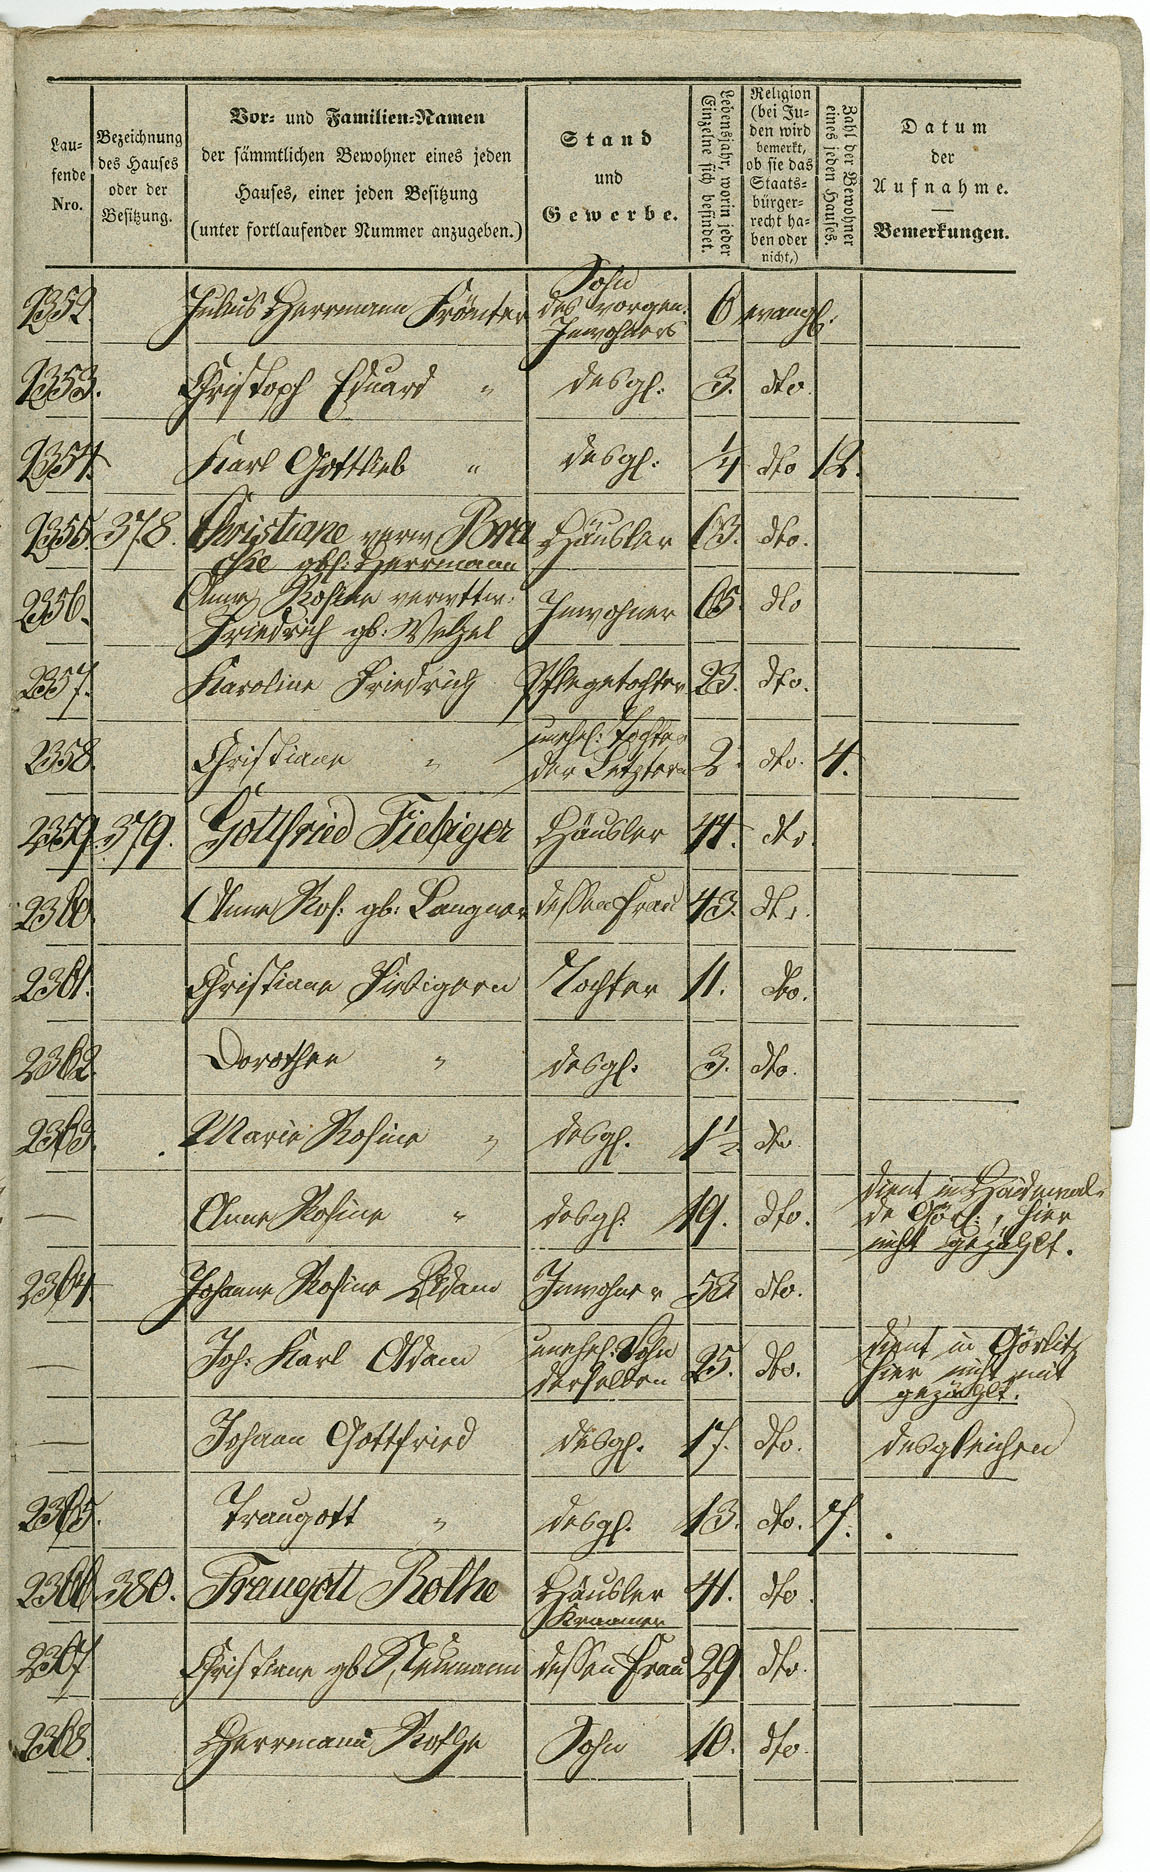 Lau-
fende
Nro.
Bezeichnung
des Hauses
oder der
Besitzung.
Vor- und Familien-Namen
der sämmtlichen Bewohner eines jeden
Hauses, einer jeden Besitzung
(unter fortlaufender Nummer anzugeben.)
Stand
und
Gewerbe.
Lebensjahr, worin jeder
Einzelne sich befindet.
Religion
(bei Ju-
den wird
bemerkt,
ob sie das
Staats-
bürger-
recht ha-
ben oder
nicht,)
Zahl der Bewohner
eines jeden Hauses.
Datum
der
Aufnahme.
Bemerkungen.
Sohn
2352. Julius Herrmann Frömter des vorgen. 6 evangl.
Inwohners
2353. Christoph Eduard " desgl. 3. dto.
2354. Karl Gottlieb " desgl. 1/4 dto 12.
2355. 378. Christiane verw. Bra Häusler 63. dto.
cke gbh: Herrmann
2356. Anne Rosine verwttw. Inwohner 65. dto
Friedrich gb: Wetzel
2357. Karoline Friedrich Pflegetochter 23. dto.
2358. Christiane " unehel: Tochter 2. dto. 4.
der Letztern
2359. 379. Gottfried Fiebiger Häusler 44. dto.
2360. Anne Ros: gb: Langner dessen Frau 43. dto.
2361. Christiane Fiebigern Tochter 11. dto.
2362. Dorothee " desgl. 3. dto.
2363. Marie Rosine " desgl. 1 1/2 dto
— Anne Rosine " desgl. 19. dto. dient in Haidewal-
de Görl:, hier
nicht gezählt.
2364. Johanne Rosine Adam Inwohner 53 dto.
— Joh: Karl Adam unehel: Sohn 25. dto. dient in Görlitz
derselben hier nicht mit
gezählt.
— Johann Gottfried desgl. 17. dto. desgleichen
2365. Traugott " desgl. 13. dto. 7.
2366 380. Traugott Rothe Häusler 41. dto
Kraamer
2367 Christiane gb Neumann dessen Frau 29 dto.
2368. Herrmann Rothe Sohn 10. dto.